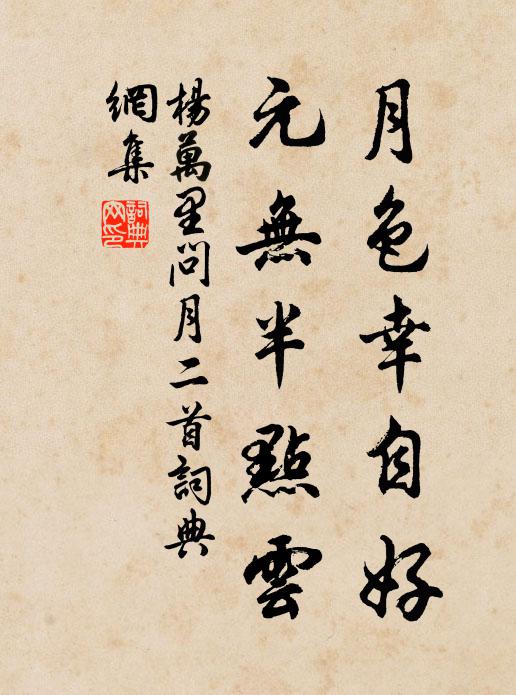 月色幸自好
元無半點雲
楊萬里問月二首詞典
網集
詞典
网印